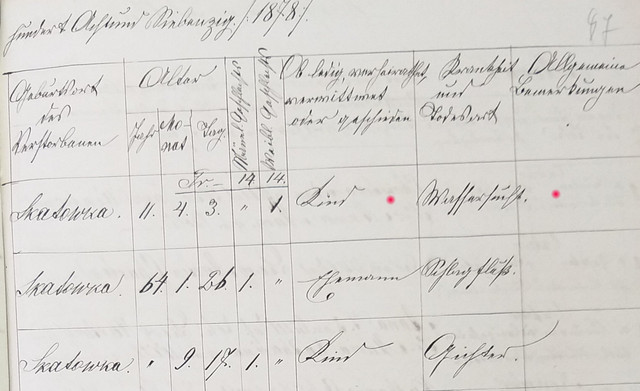 hundert Achtund Siebenzig. /:1878:/.
87
Geburtsort des Verstorbenen
Alter
Jahr
Mo-
nat
Tag.
Männl. Geschlechts
Weibl. Geschlechts
Ob ledig, verheirathet,
verwittwet
oder geschieden
Krankheit
und
Todesart
Allgemeine
Bemerkungen
Tr— 14 14.
Skatowka. 11. 4. 3. " 1. Kind Wassersucht.
Skatowka. 64. 1. 26. 1. " Ehemann Schlagfluß.
Skatowka. " 9. 17. 1. " Kind Gichter.